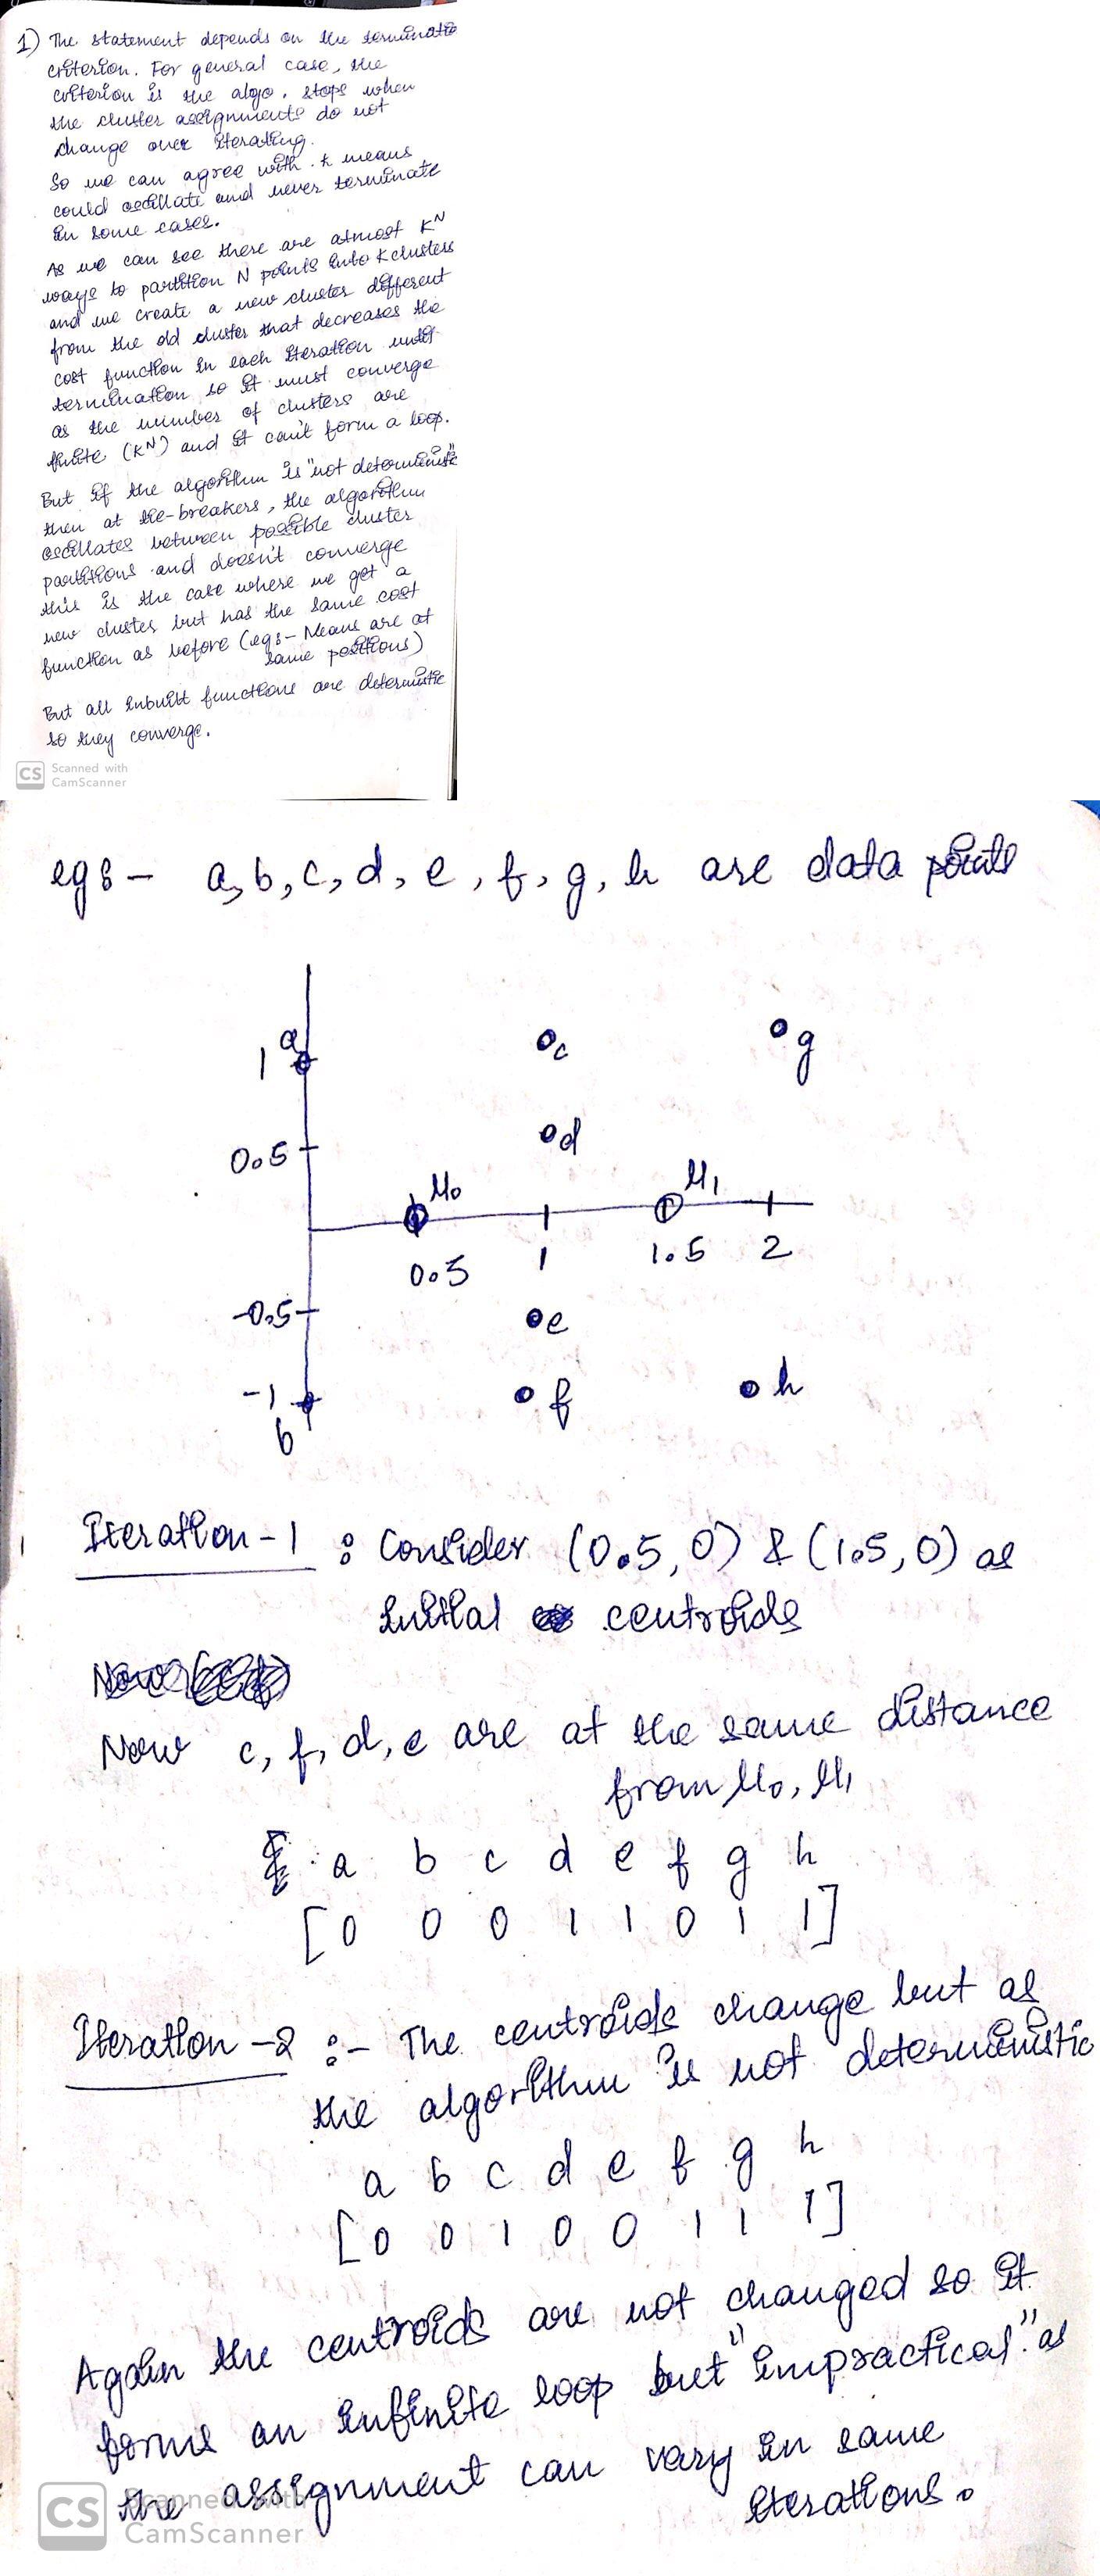 1) The statement depends on the terminatio
criterion. For general case, the
criterion is the algo. stops when
the cluster assignments do not
change over iterating.
So we can agree with k means
could oscillate and never terminate
in some cases.
As we can see there are atmost K^N
ways to partition N points into K clusters
and we create a new cluster different
from the old cluster that decreases the
cost function in each iteration until
termination so it must converge
as the number of clusters are
finite (K^N) and it can't form a loop.
But if the algorithm is "not deterministic"
then at tie-breakers, the algorithm
oscillates between possible cluster
partitions and doesn't converge
this is the case where we get a
new cluster but has the same cost
function as before (egs- Means are at
same positions)
But all inbuilt functions are determistic
so they converge.
CS Scanned with
CamScanner
egs - a, b, c, d, e, f, g, h are data points
a
1
c
g
0.5
d
μ0
μ1
0.5
1
1.5
2
-0.5
e
-1
b
f
h
Iteration-1 : Consider (0.5, 0) & (1.5, 0) as
initial centroids
Now c, f, d, e are at the same distance
from μ0, μ1
a b c d e f g h
[0 0 0 1 1 0 1 1]
Iteration-2 :- The centroids change but as
the algorithm is not deterministic
a b c d e f g h
[0 0 1 0 0 1 1 1]
Again the centroids are not changed so it
forms an infinite loop but "impractical" as
the assignment can vary in same
iterations.
CS Scanned with
CamScanner